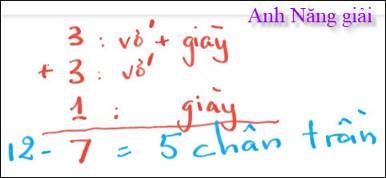 Anh Năng giải
3 : vớ + giày
+ 3 : vớ
1 : giày
12 - 7 = 5 chân trần